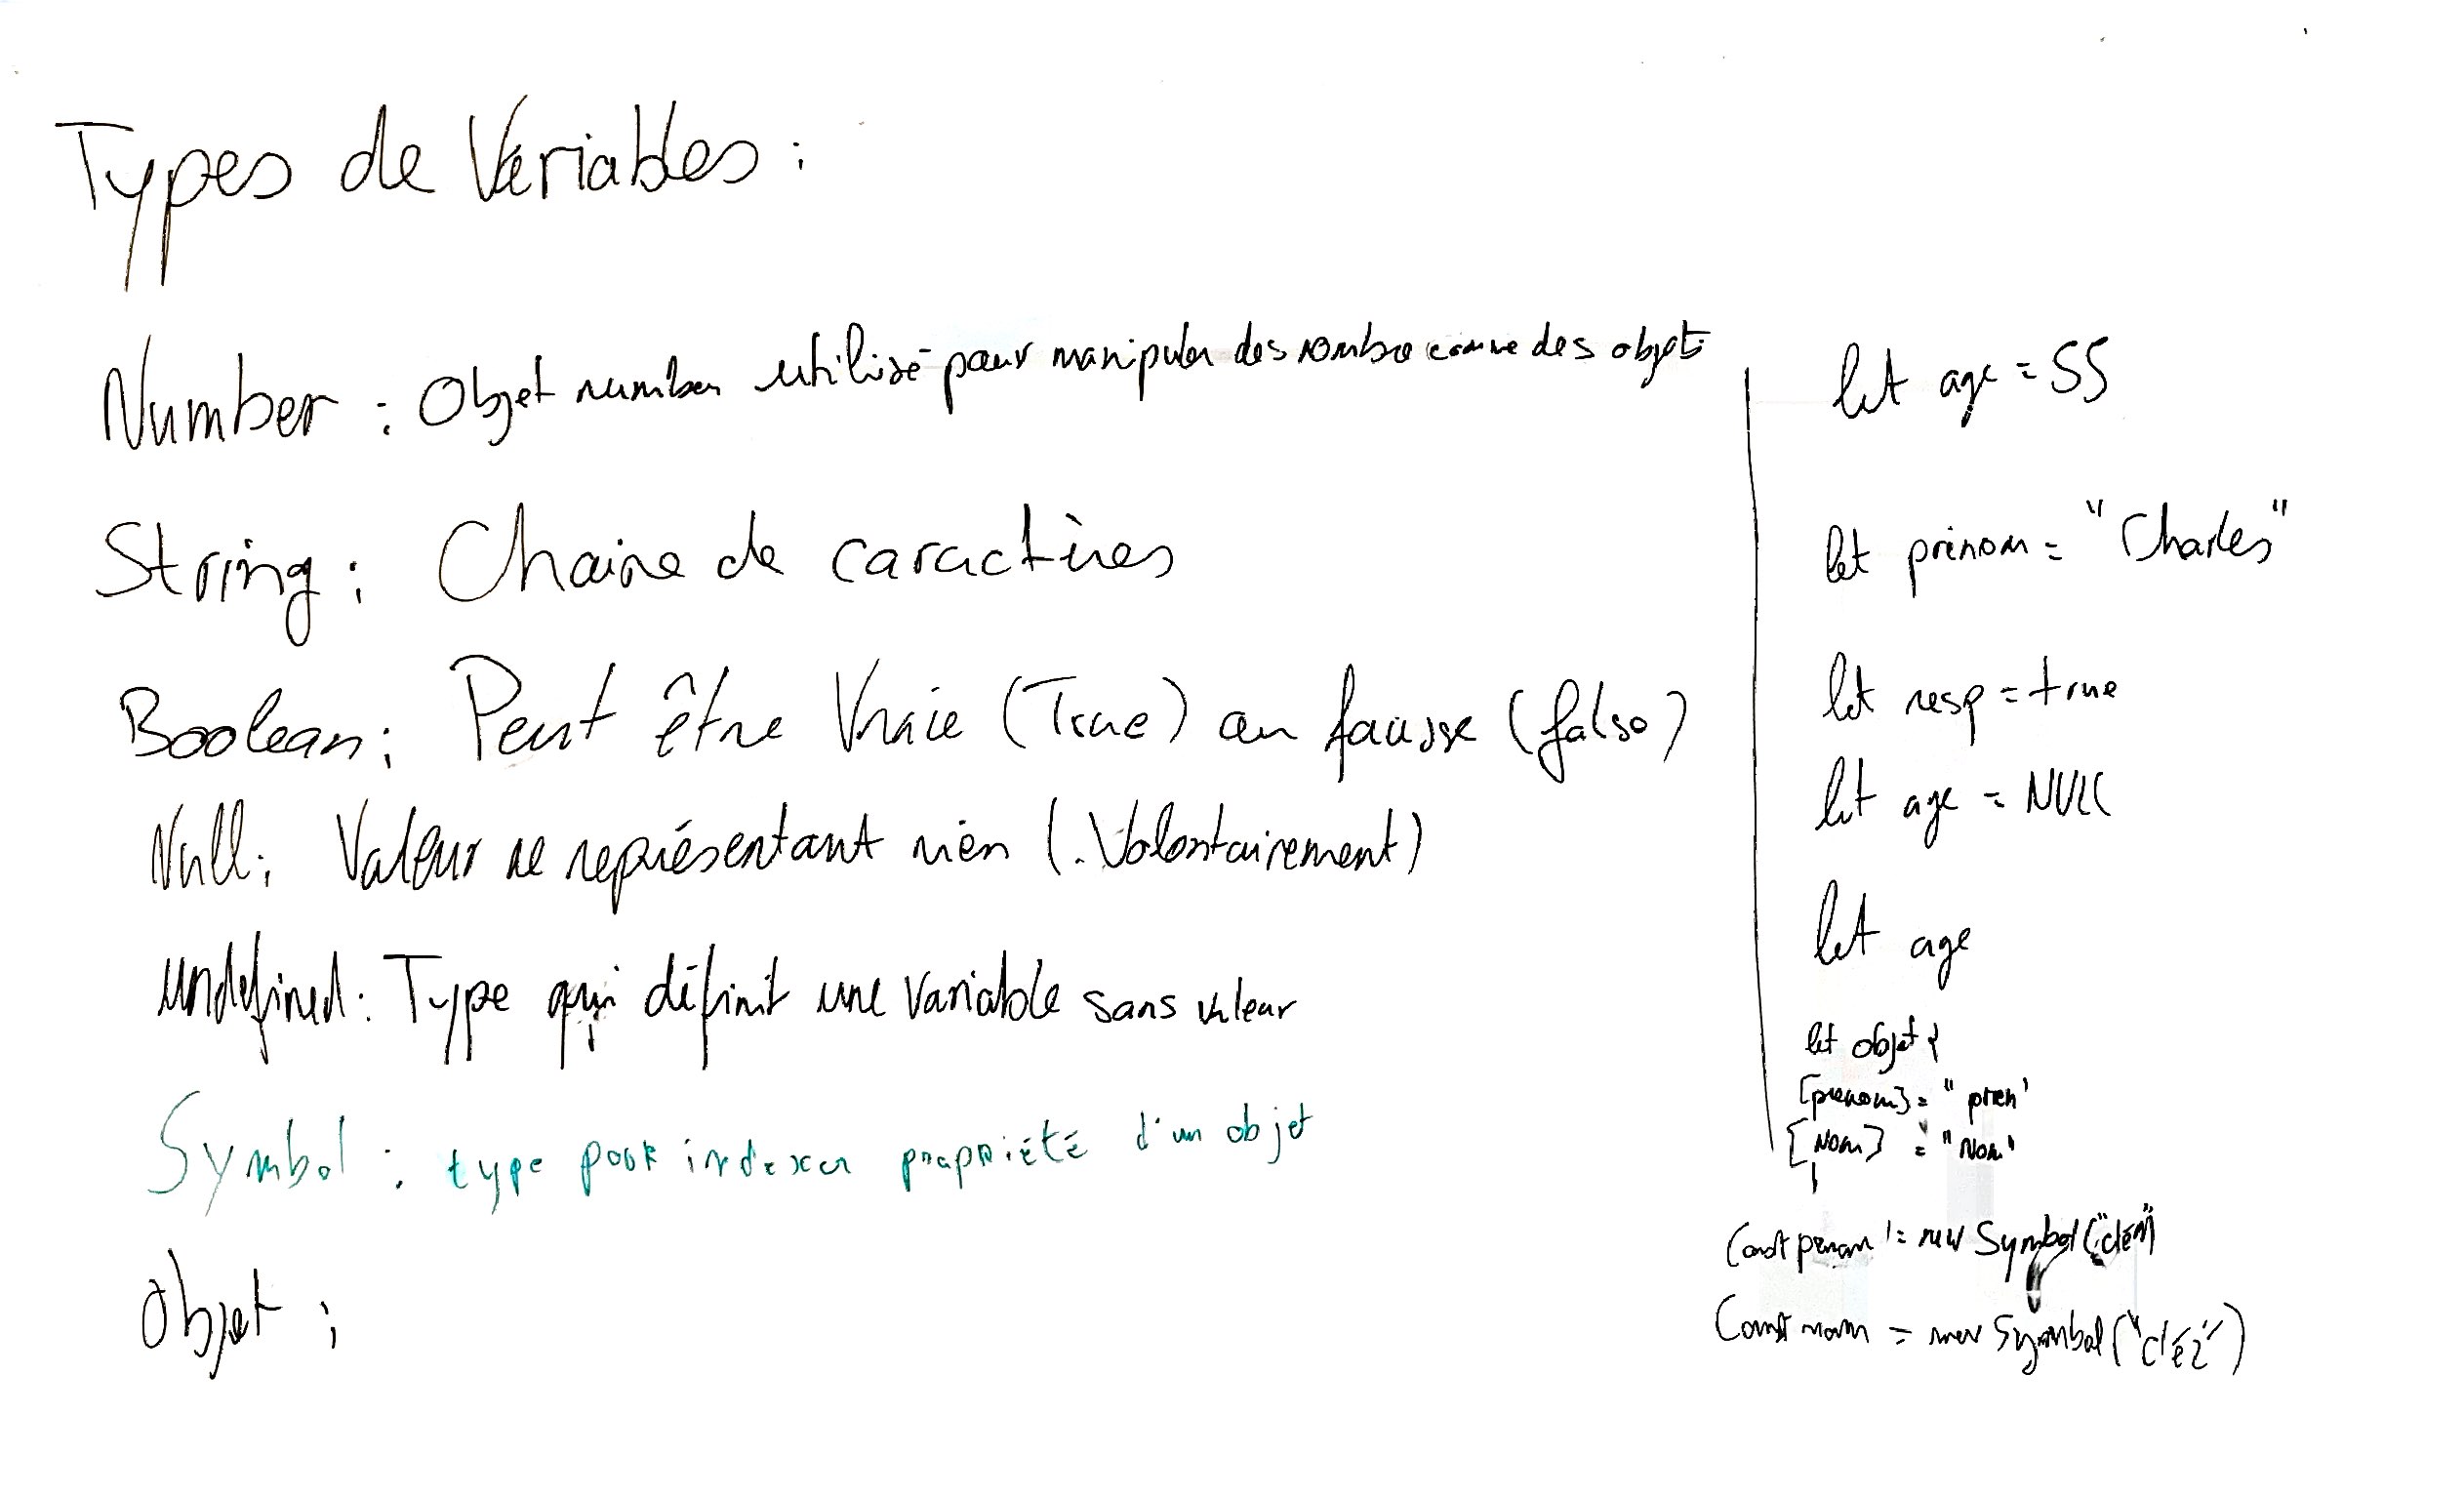 Types de Variables :
Number : Objet number utilisé pour manipuler des nombre comme des objets
let age = 55
String : Chaine de caractères
let prénom = "Charles"
Boolean : Peut être Vraie (True) ou fausse (false)
let resp = true
Null : Valeur ne représentant rien (Volontairement)
let age = NULL
undefined : Type qui définit une variable sans valeur
let age
Symbol : type pour indexer propriété d'un objet
let objet {
[prenom] = "pren"
[Nom] = "Nom"
}
Const prenom = new Symbol("clé1")
Const nom = new Symbol("clé2")
Objet :